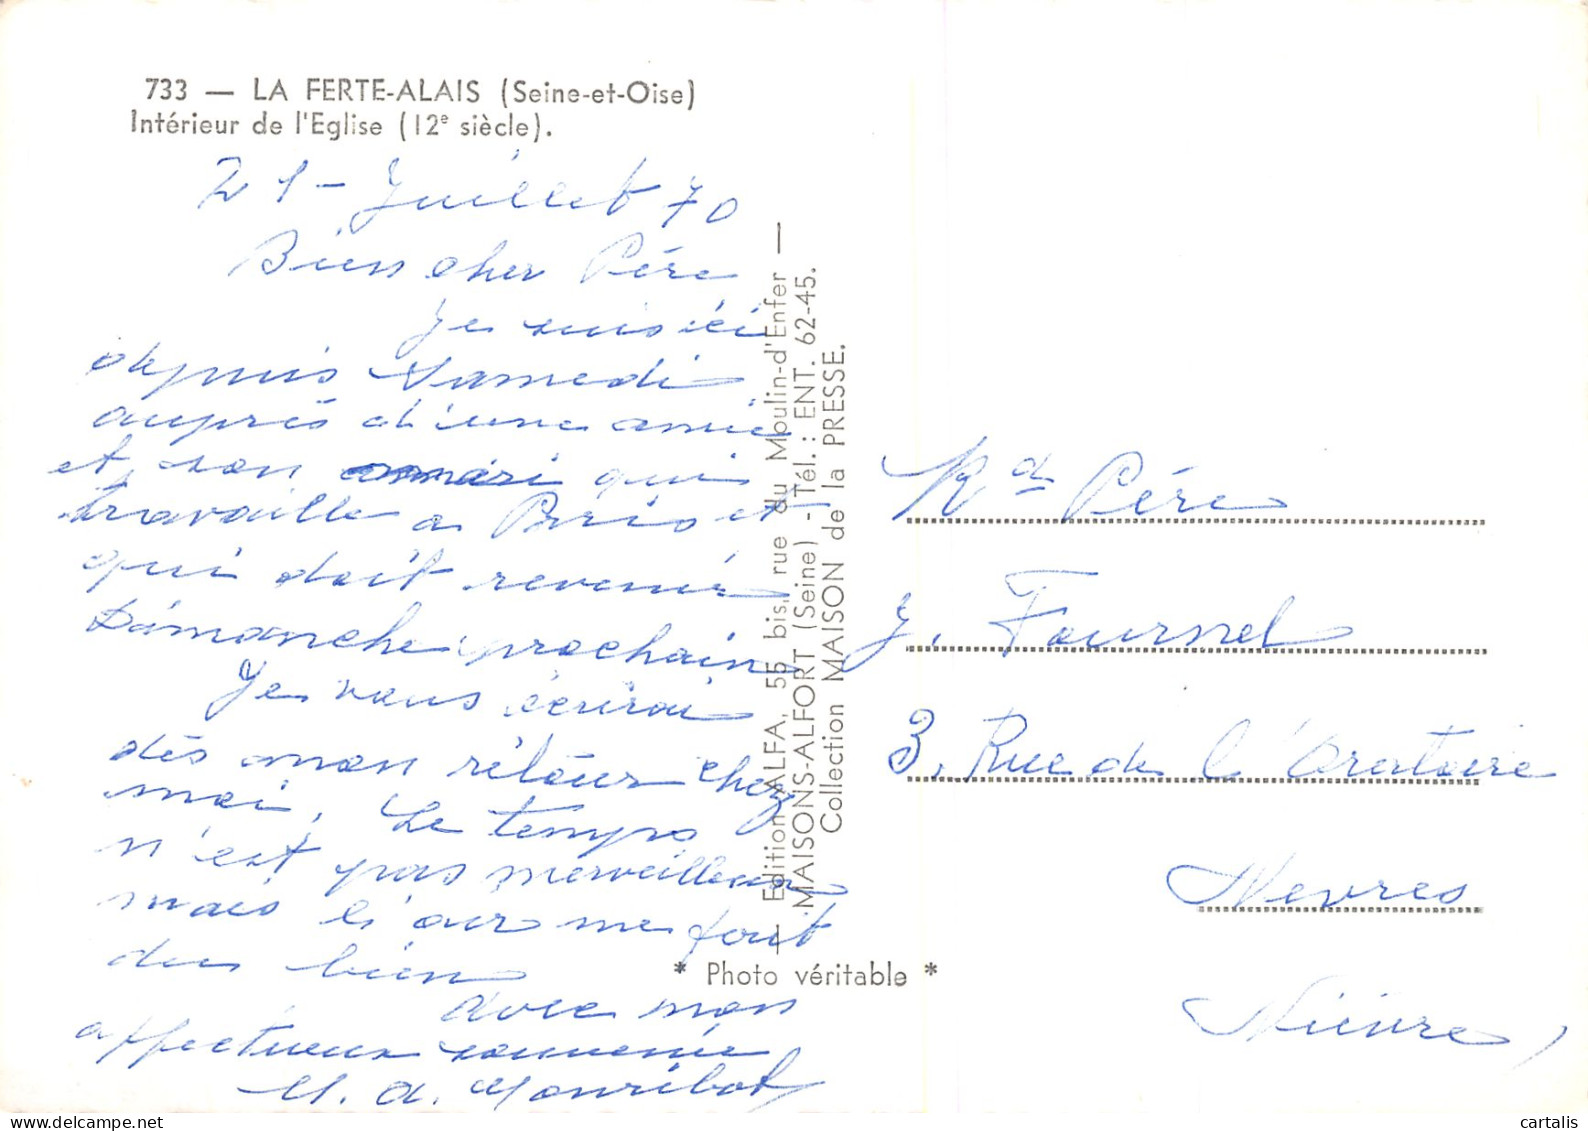 733 — LA FERTE-ALAIS (Seine-et-Oise)
Intérieur de l'Eglise (12e siècle).
21 - Juillet 70
Bien cher Père
Je suis ici
depuis Samedi
auprès d'une amie
et son mari qui
travaille a Paris et
qui doit revenir
Dimanche prochain
Je vous écrirai
dès mon rétour chez
moi. Le temps
n'est pas merveilleux
mais l'air me fait
du bien
avec mon
affectueux souvenir
M. A.
— Edition ALFA, 55 bis, rue du Moulin-d'Enfer —
MAISONS-ALFORT (Seine) - Tél. : ENT. 62-45.
Collection MAISON de la PRESSE.
* Photo véritable *
Rd Père
J. Fournel
3, Rue de l'Oratoire
Nevres
Nièvre
cartalis
www.delcampe.net